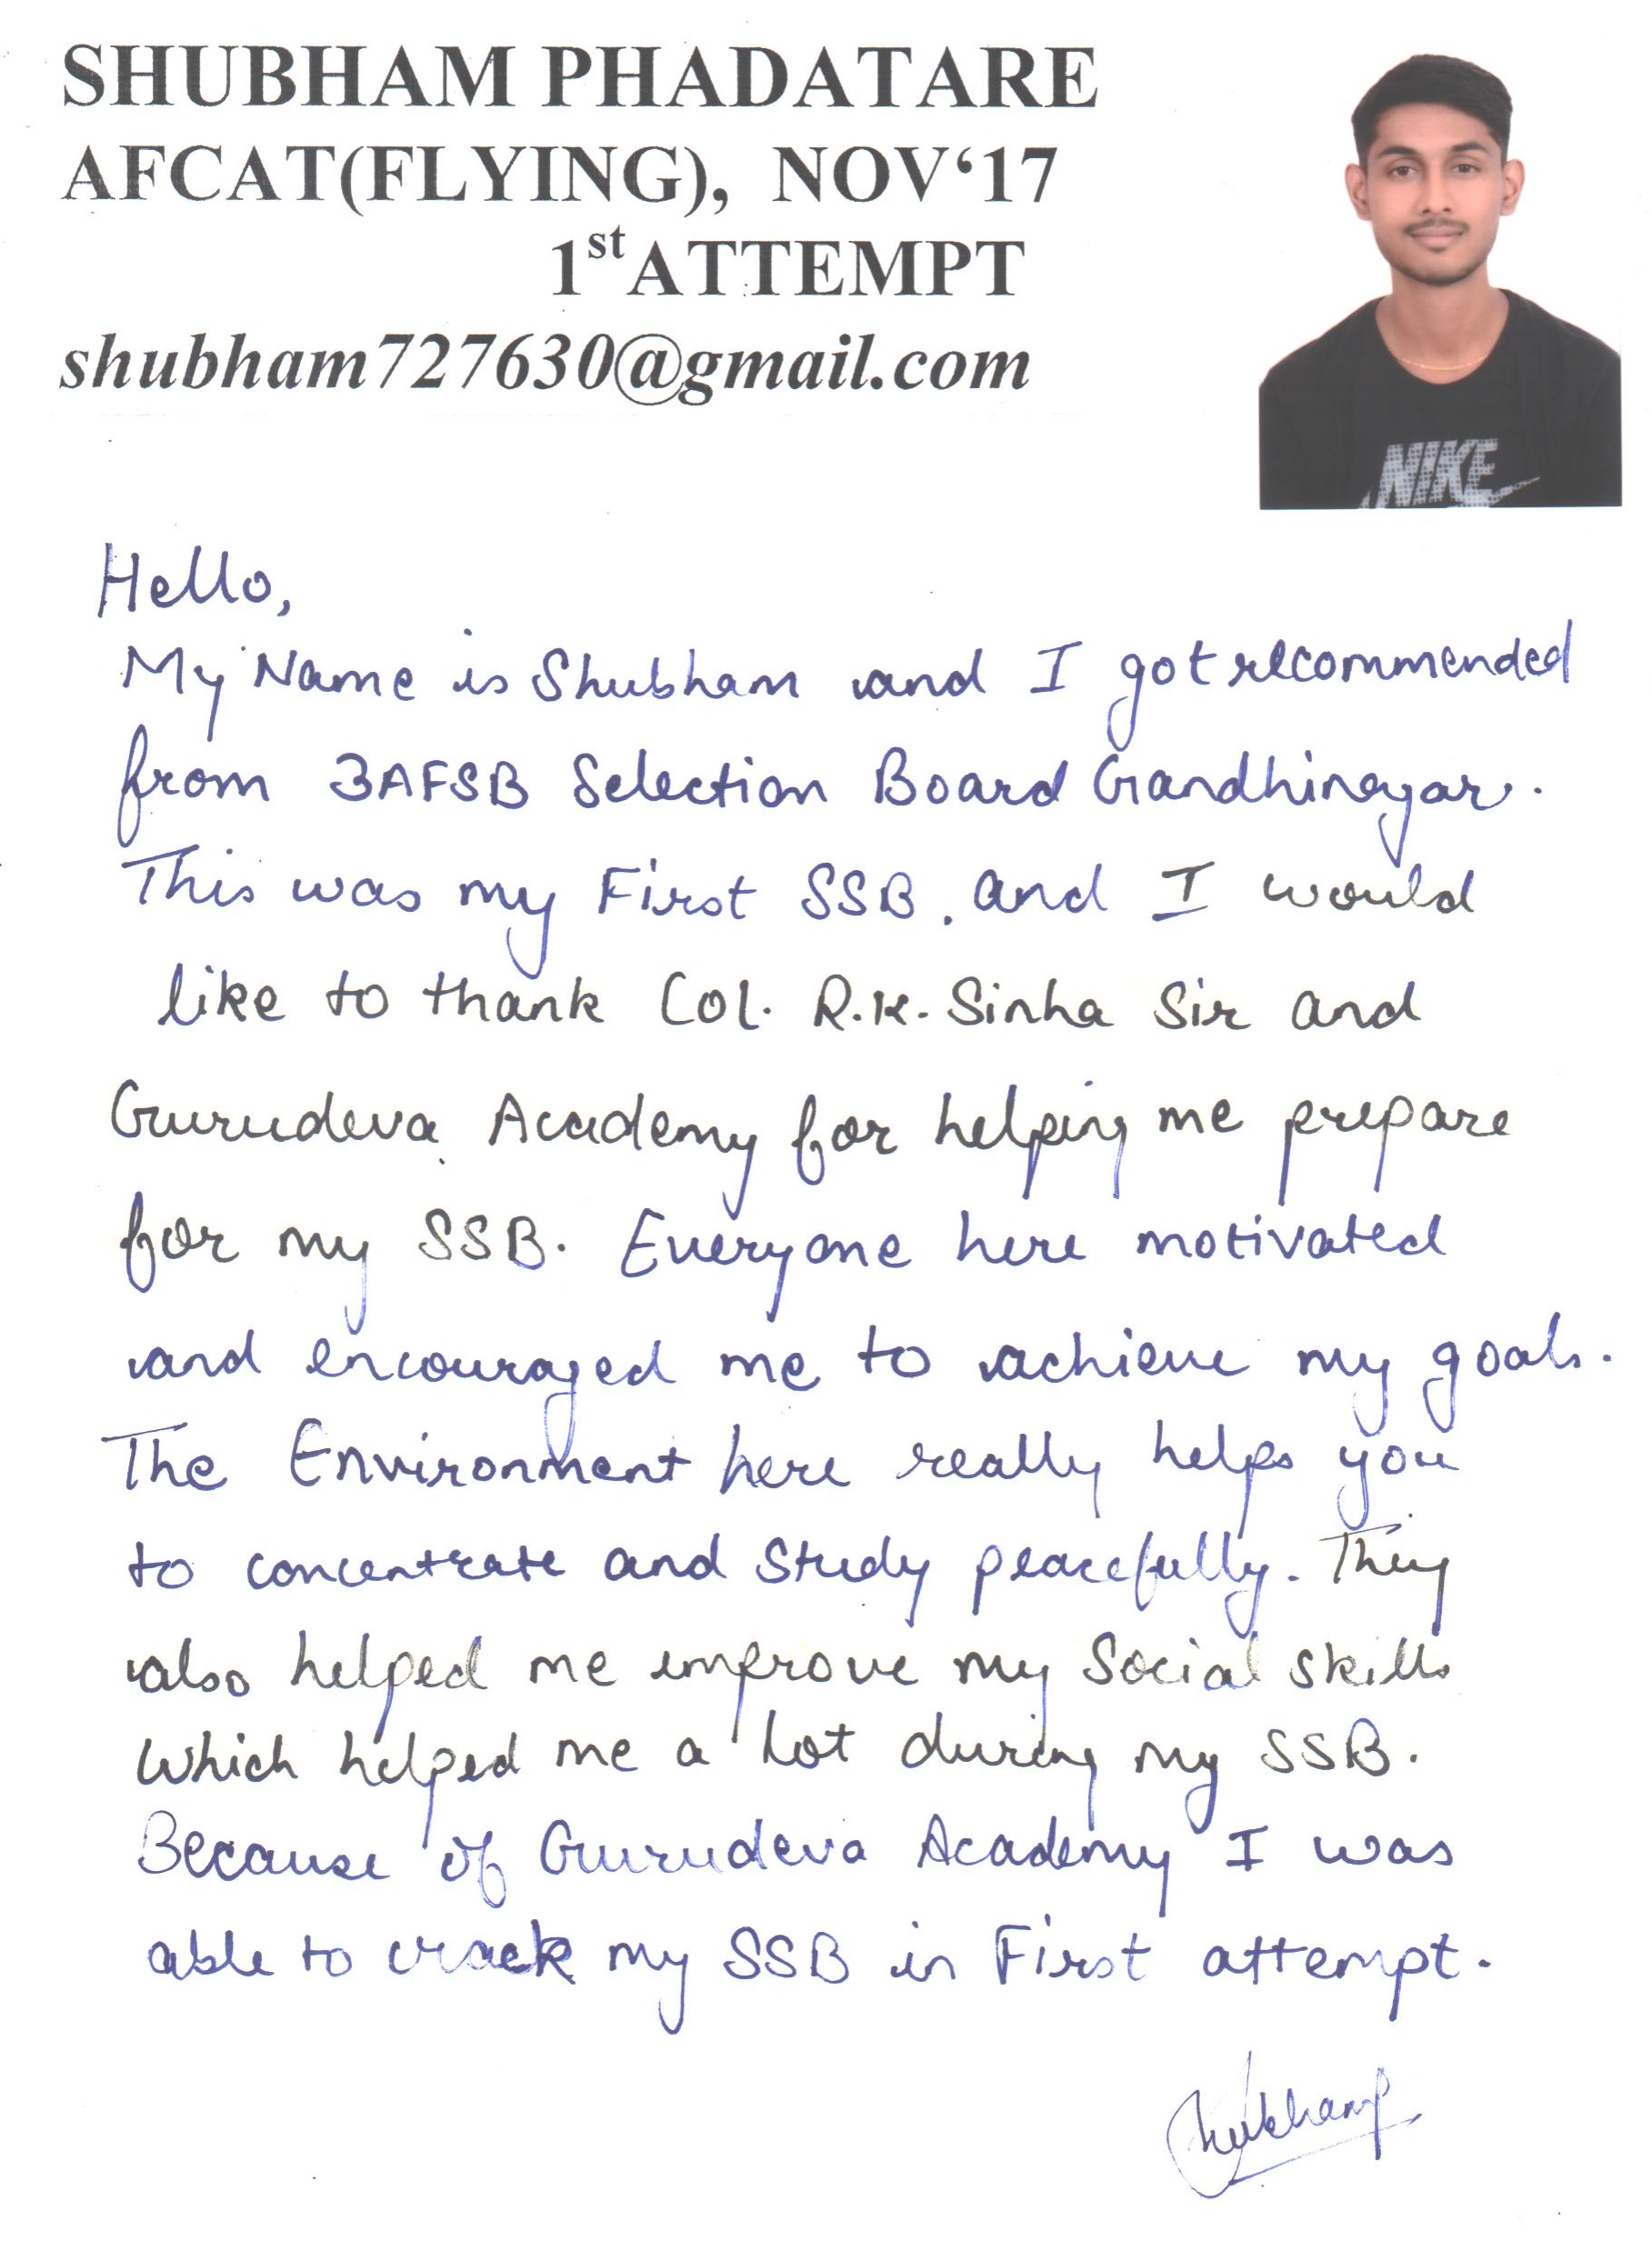 SHUBHAM PHADATARE
AFCAT(FLYING), NOV‘17
1st ATTEMPT
shubham727630@gmail.com
NIKE
Hello,
My Name is Shubham and I got recommended
from 3AFSB Selection Board Gandhinagar.
This was my First SSB. and I would
like to thank Col. R.K. Sinha Sir and
Gurudeva Academy for helping me prepare
for my SSB. Everyone here motivated
and encouraged me to achieve my goals.
The Environment here really helps you
to concentrate and study peacefully. They
also helped me improve my Social skills
which helped me a lot during my SSB.
Because of Gurudeva Academy I was
able to crack my SSB in First attempt.
Shubham